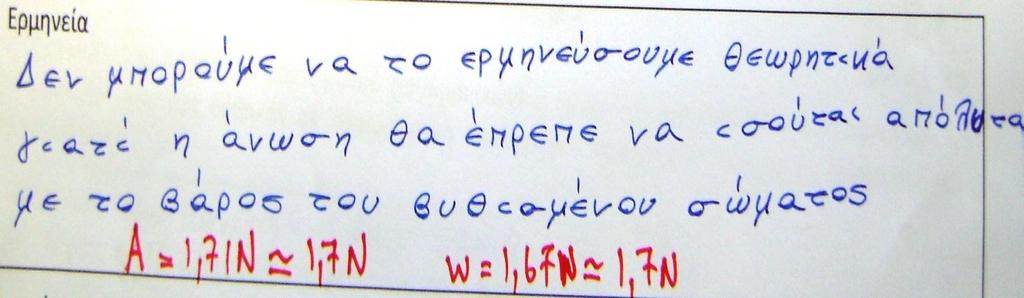 Ερμηνεία
Δεν μπορούμε να το ερμηνεύσουμε θεωρητικά
γιατί η άνωση θα έπρεπε να ισούται απόλυτα
με το βάρος του βυθισμένου σώματος
A = 1,71N ≃ 1,7N w = 1,67N ≃ 1,7N